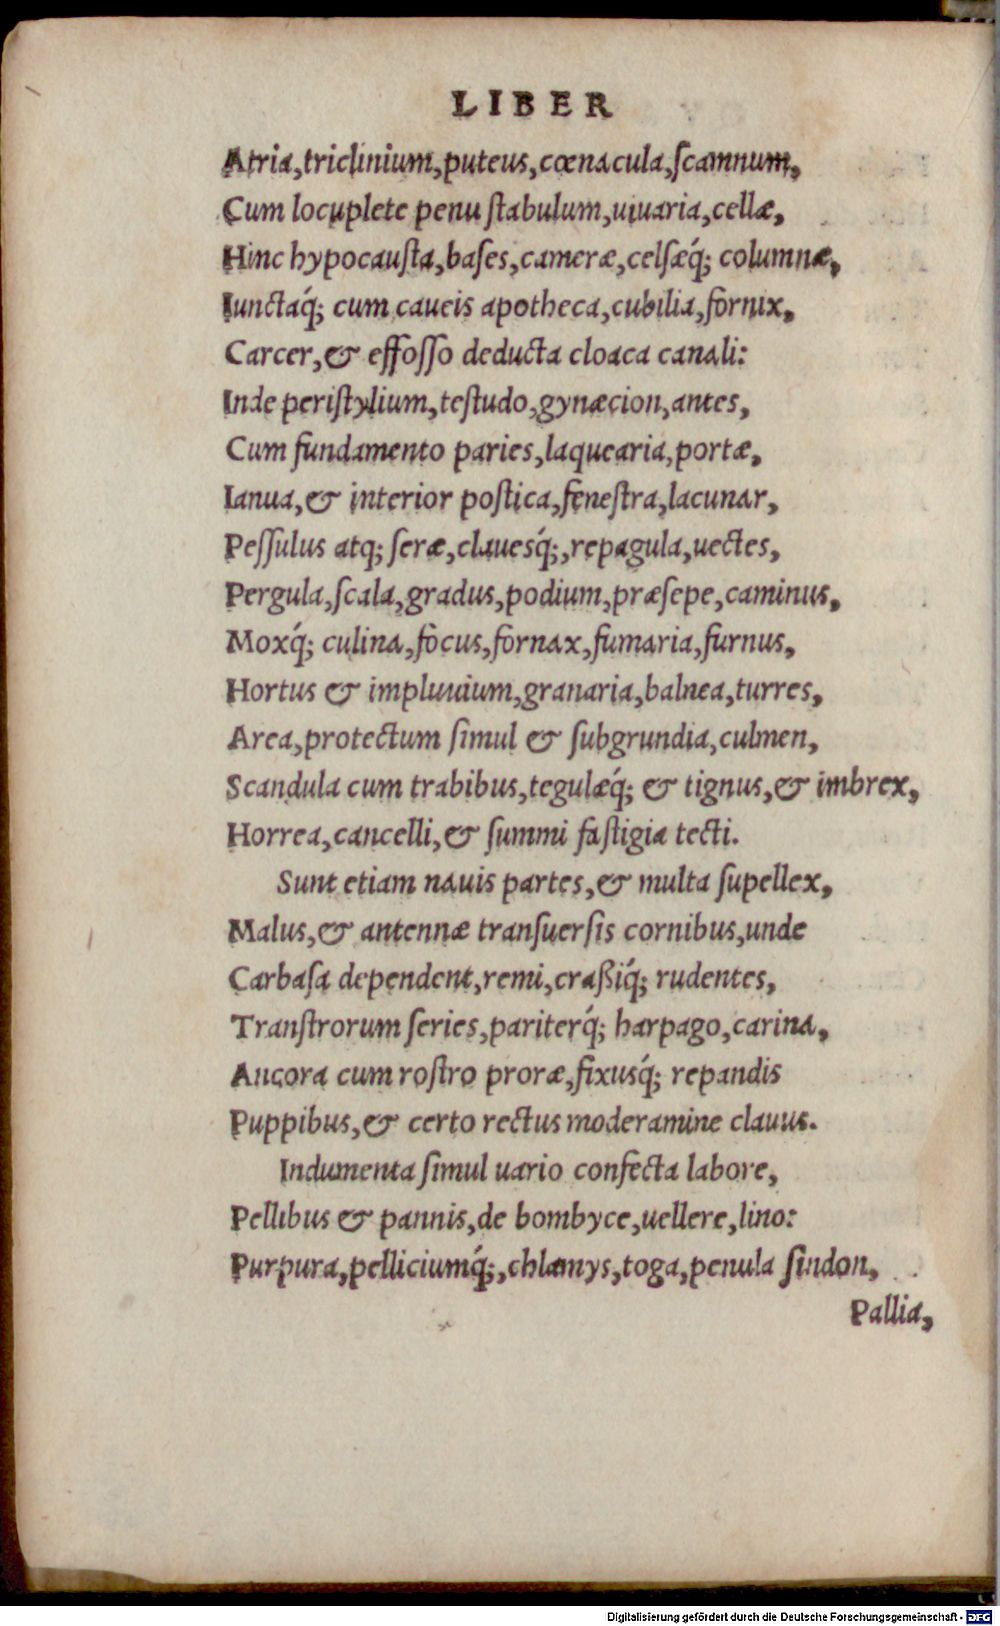 LIBER
Atria,triclinium,puteus,cœnacula,ſcamnum,
Cum locuplete penu ſtabulum,uiuaria,cellæ,
Hinc hypocauſta,baſes,cameræ,celſæq́; columnæ,
Iunctaq́; cum caueis apotheca,cubilia,fornix,
Carcer,& effoſſo deducta cloaca canali:
Inde periſtylium,teſtudo,gynæcion,antes,
Cum fundamento paries,laquearia,portæ,
Ianua,& interior poſtica,feneſtra,lacunar,
Peſſulus atq; ſeræ,clauesq́;,repagula,uectes,
Pergula,ſcala,gradus,podium,præſepe,caminus,
Moxq́; culina,focus,fornax,fumaria,furnus,
Hortus & impluuium,granaria,balnea,turres,
Area,protectum ſimul & ſubgrundia,culmen,
Scandula cum trabibus,tegulæq́; & tignus,& imbrex,
Horrea,cancelli,& ſummi faſtigia tecti.
Sunt etiam nauis partes,& multa ſupellex,
Malus,& antennæ tranſuerſis cornibus,unde
Carbaſa dependent,remi,craßiq́; rudentes,
Tranſtrorum ſeries,pariterq́; harpago,carina,
Ancora cum roſtro proræ,fixusq́; repandis
Puppibus,& certo rectus moderamine clauus.
Indumenta ſimul uario confecta labore,
Pellibus & pannis,de bombyce,uellere,lino:
Purpura,pelliciumq́;,chlamys,toga,penula ſindon,
Pallia,
Digitalisierung gefördert durch die Deutsche Forschungsgemeinschaft - DFG